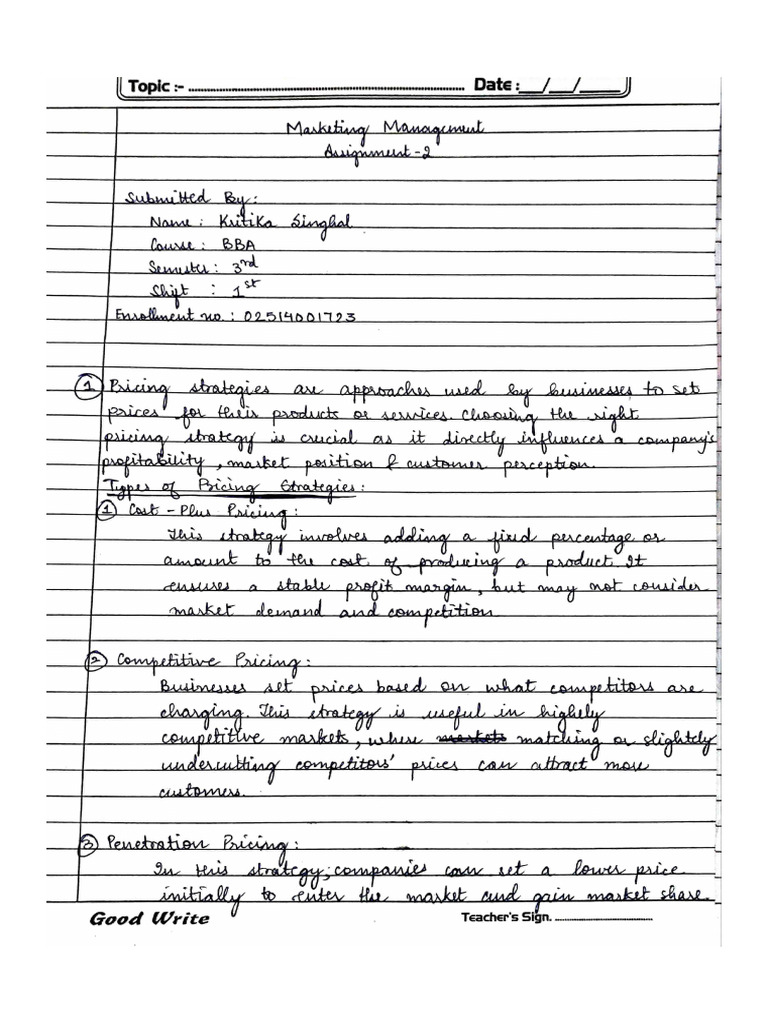 Topic :- ........................ Date :__/__/____
Marketing Management
Assignment-2
Submitted By:
Name: Kritika Singhal
Course: BBA
Semester: 3rd
Shift : 1st
Enrollment no.: 02514001723
① Pricing strategies are approaches used by businesses to set
prices for their products or services. Choosing the right
pricing strategy is crucial as it directly influences a company's
profitability, market position & customer perception.
Types of Pricing Strategies:
① Cost-Plus Pricing:
This strategy involves adding a fixed percentage or
amount to the cost of producing a product. It
ensures a stable profit margin, but may not consider
market demand and competition
② Competitive Pricing:
Businesses set prices based on what competitors are
charging. This strategy is useful in highely
competitive markets, where markets matching or slightly
undercutting competitors' prices can attract more
customers.
③ Penetration Pricing:
In this strategy, companies can set a lower price
initially to enter the market and gain market share.
Good Write Teacher's Sign. ........................